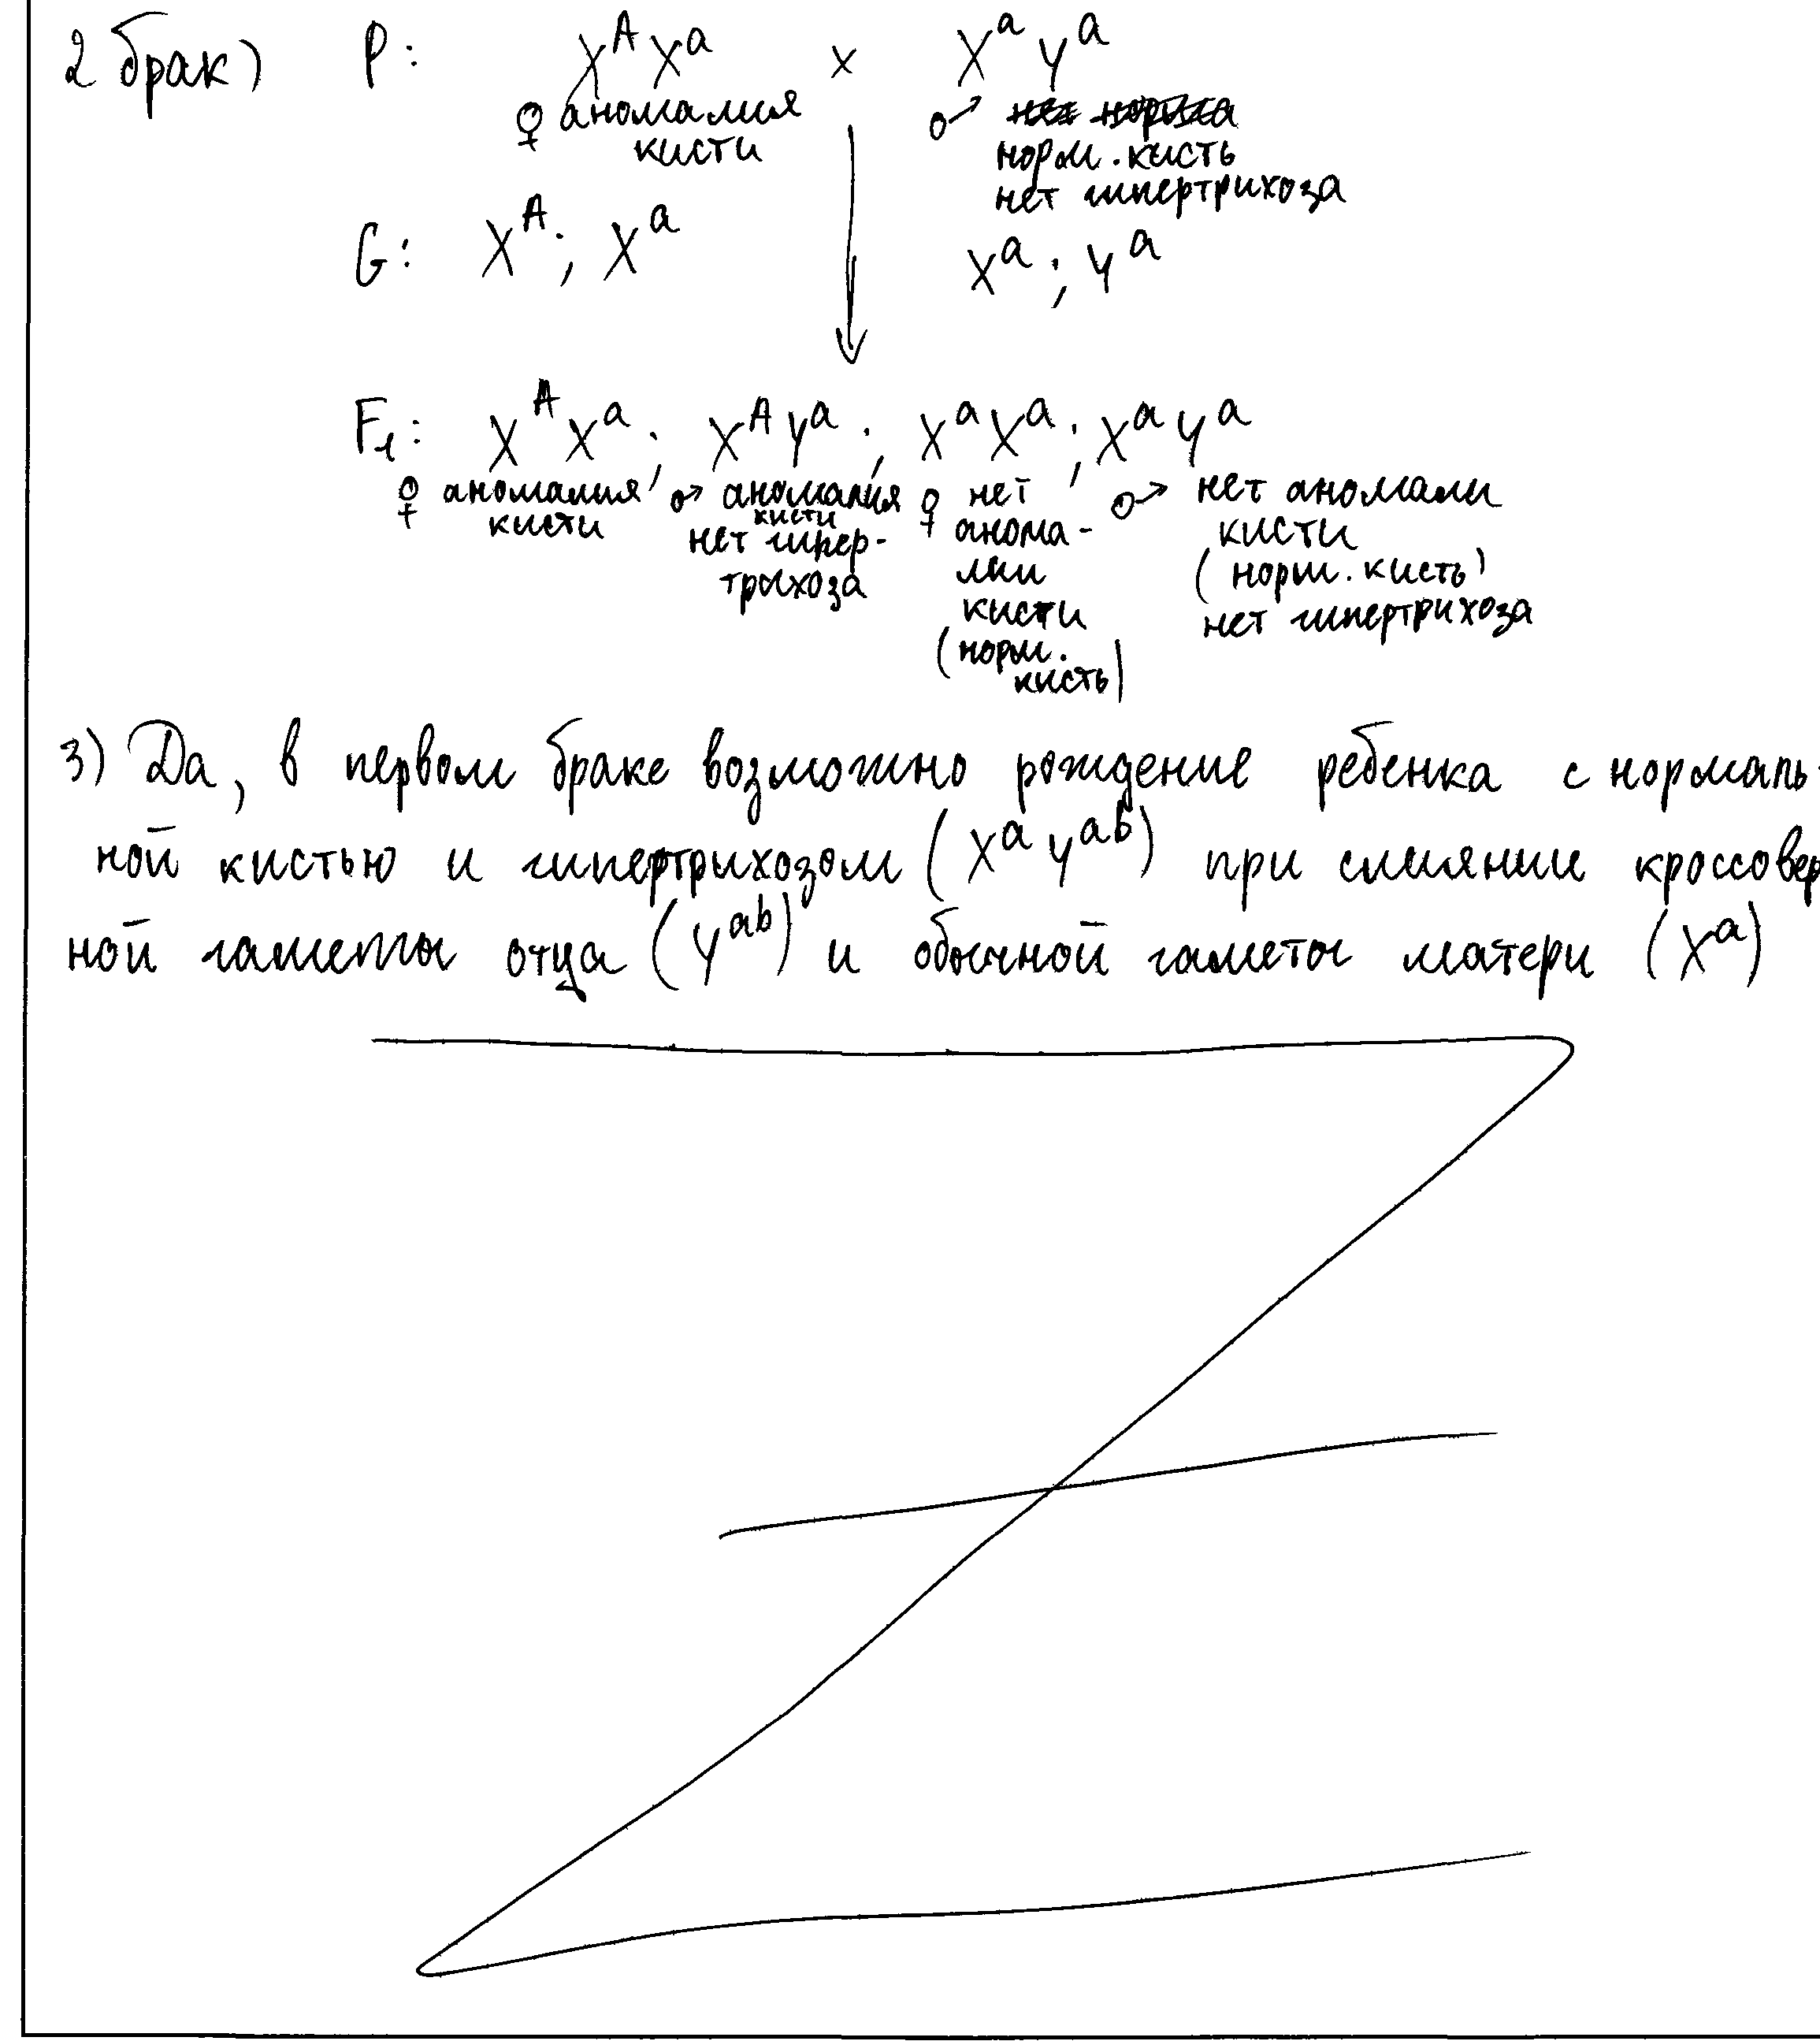 2 брак) P: X^A X^a x X^a Y^a
♀ аномалия кисти ♂ норм. кисть нет гипертрихоза
G: X^A; X^a X^a; Y^a
F1: X^A X^a; X^A Y^a; X^a X^a; X^a Y^a
♀ аномалия кисти
♂ аномалия кисти нет гипер-
трихоза
♀ нет
анома-
лии
кисти
(норм.
кисть)
♂ нет аномали
кисти
(норм. кисть)
нет гипертрихоза
3) Да, в первом браке возможно рождение ребенка с нормаль-
ной кистью и гипертрихозом (X^a Y^ab) при слиянии кроссовер
ной гаметы отца (Y^ab) и обычной гаметы матери (X^a)